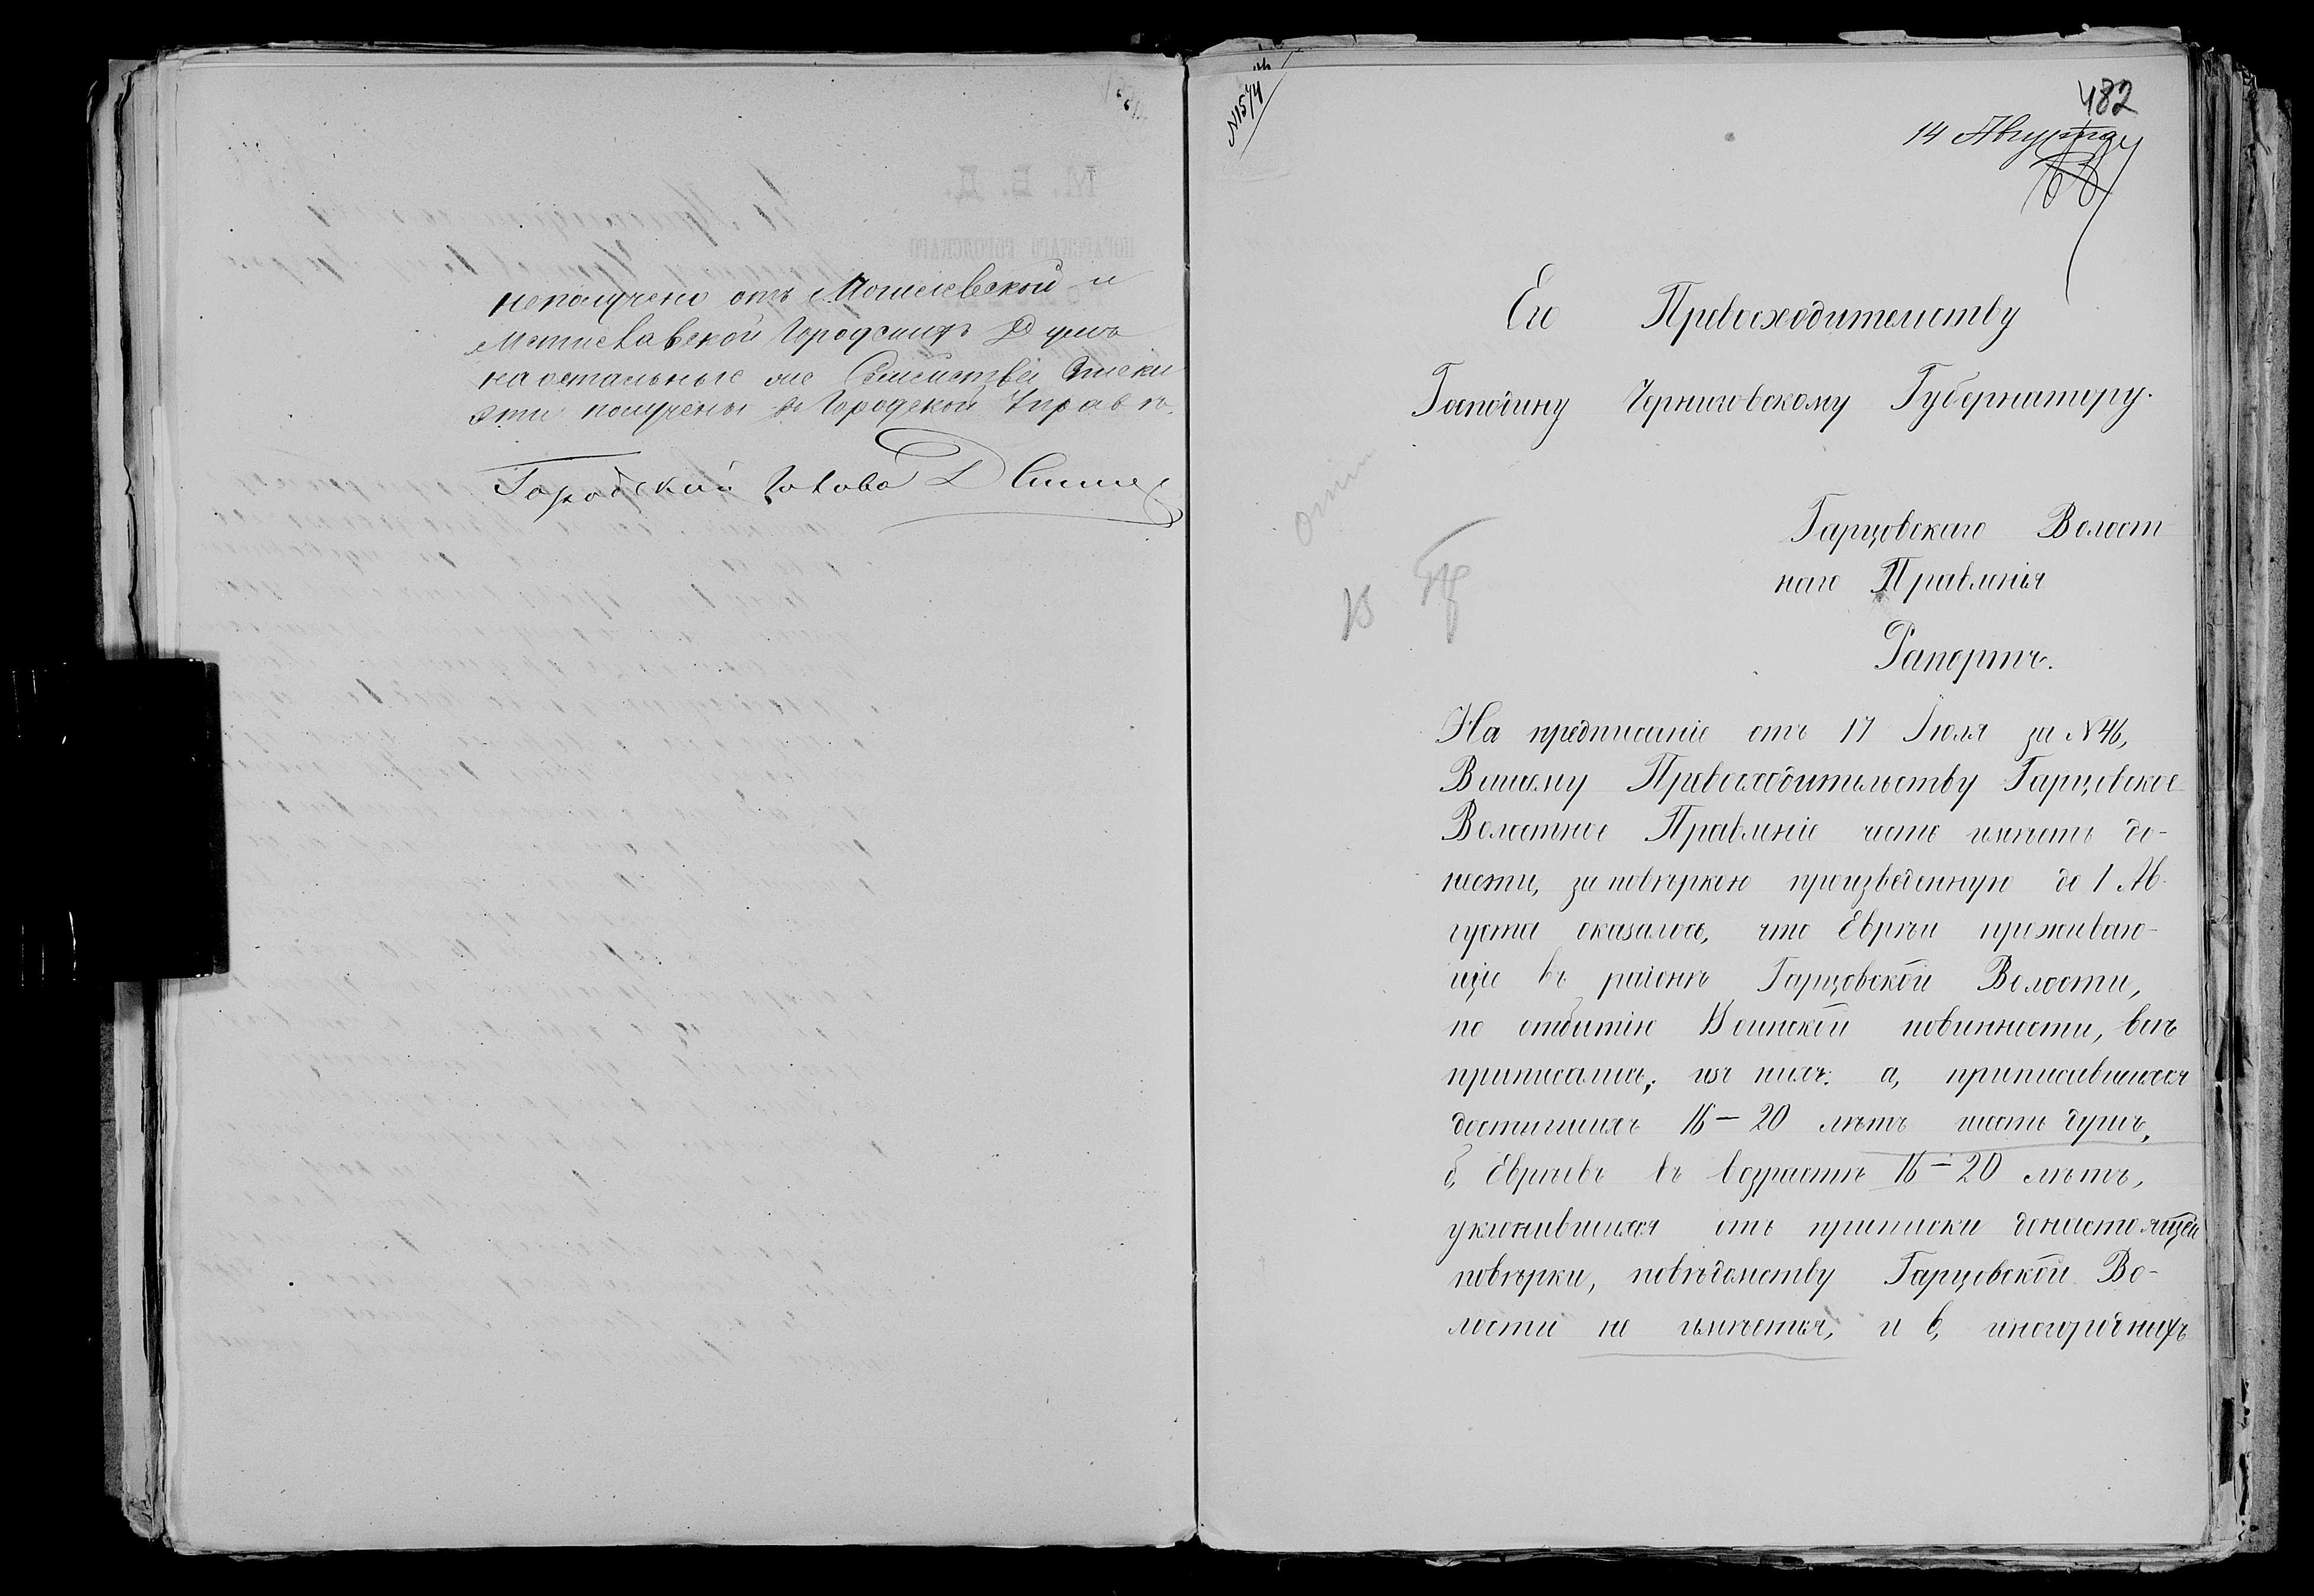 неполучено отъ Могилевской и
Мстиславской Городскихъ Думъ
на остальные же Семейства Списки
эти получены въ Городской Управѣ.
Городской Голова
482
14 Августа
N1574
Его Превосходительству
Господину Черниговскому Губернатору.
Гарцовскаго Волост
наго Правленія
Рапортъ.
На предписаніе отъ 17 Іюля за N46,
Вашему Превосходительству Гарцовское
Волостное Правленіе честь имѣетъ до-
нести, за повѣркою произведенную до 1 Ав-
густа оказалось, что Евреи проживаю-
щіе въ районѣ Гарцовской Волости,
по отбытію Воинской повинности, всѣ
приписались; изъ нихъ: а, приписавшихся
достигшихъ 16-20 лѣтъ шесть душъ,
б, Евреевъ въ возрастѣ 16-20 лѣтъ,
уклонившихся отъ приписки донастоящей
повѣрки, повѣдомству Гарцовской Во-
лости не имѣется, и в, иногородныхъ